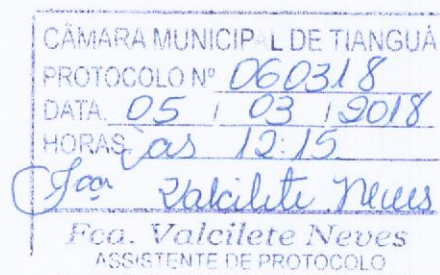 CÂMARA MUNICIPAL DE TIANGUÁ
PROTOCOLO Nº 060318
DATA. 05 / 03 / 2018
HORAS às 12:15
Fca Valcilete Neves
Fca. Valcilete Neves
ASSISTENTE DE PROTOCOLO